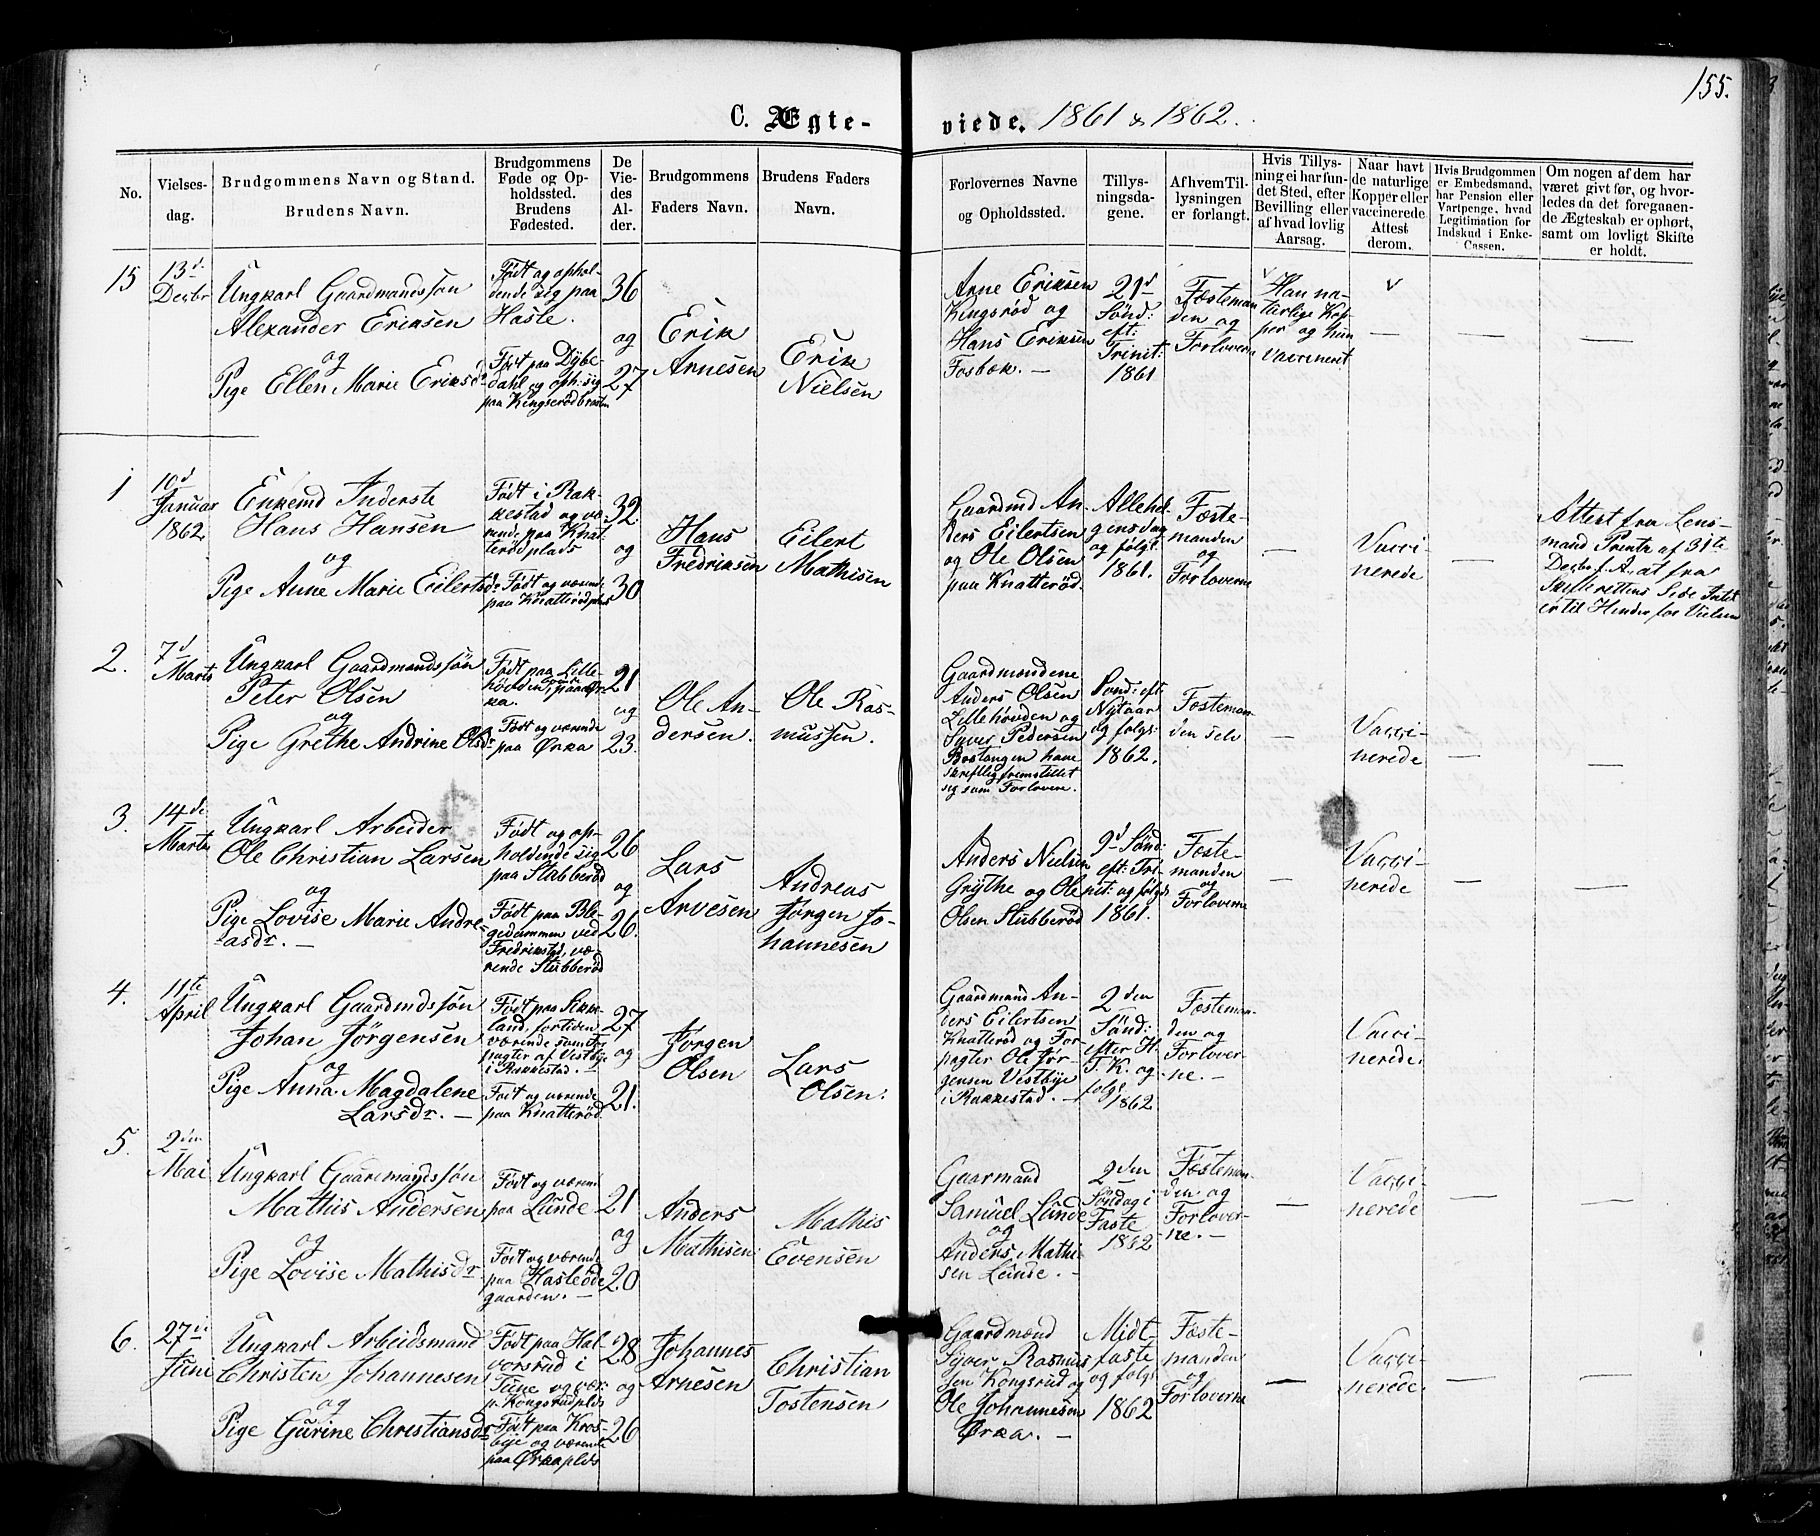 155.
C. Ægte-
viede. 1861 & 1862.
No.
Vielses-
dag.
Brudgommens Navn og Stand.
Brudens Navn.
Brudgommens
Føde og Op-
holdssted.
Brudens
Fødested.
De
Vie-
des
Al-
der.
Brudgommens
Faders Navn.
Brudens Faders
Navn.
Forlovernes Navne
og Opholdssted.
Tillys-
ningsda-
gene.
Af hvem Til-
lysningen
er forlangt.
Hvis Tillys-
ning ei har fun-
det Sted, efter
Bevilling eller
af hvad lovlig
Aarsag.
Naar havt
de naturlige
Kopper eller
vaccinerede
Attest
derom.
Hvis Brudgommen
er Embedsmand,
har Pension eller
Vartpenge, hvad
Legitimation for
Indskud i Enke-
Cassen.
Om nogen af dem har
været givt før, og hvor-
ledes da det foregaaen-
de Ægteskab er ophørt,
samt om lovligt Skifte
er holdt.
15
13d
Decbr
Ungkarl Gaardmandssøn
Alexander Eriksen
og
Pige Ellen Marie Eriksd
Født og ophol-
dende sig paa
Hasle.
Født paa Dybe-
dahl og oph: sig
paa Kingsrødbraaten
36
og
27
Erik
Arnesen
Erik
Nielsen
Arne Eriksen
Kingsrød og
Hans Eriksen
Fosbæk. —
21d
Sønd:
eft:
Trinit:
1861
Fæsteman
den og
Forloverne
v Han na-
turlige Kop-
per og hun
vaccineret
v
—
—
—
1
10d
Januar
1862.
Enkemd Inderste
Hans Hansen
og
Pige Anne Marie Eilertsdr
Født i Rak-
kestad og væ-
rende paa Knat-
terødplads
Født og værende
paa Knatterødplds
32.
og
30
Hans
Fredriksen
Eilert
Mathisen
Gaardmd An-
ders Eilertsen
og Ole Olsen
paa Knatterød.
Allehel-
gensdag
og følgt
1861.
Fæste-
manden
og
Forloverne
—
Vacci-
nerede
—
Attest fra Lens-
mand Prentz af 31te
Decbr f. A., at fra
Skifterettens Side Intet
er til Hinder for Vielsen
2.
7d
Marts
Ungkarl Gaardmandssøn
Peter Olsen
og
Pige Grethe Andrine Olsdr
Født paa Lille-
høvden, paa Ør-
ka.
Født og værende
paa Ørka
21
og
23.
Ole An-
dersen.
Ole Ras-
mussen.
Gaardmændene
Anders Olsen
Lillehøvden og
Syver Pedersen
Bostangen have
skreftlig fremstillet
sig som Forlovere.
Sønd: eft
Nytaar
og følgs:
1862.
Fæsteman
den selv
Vacci-
nerede
—
—
3.
14de
Marts
Ungkarl Arbeider
Ole Christian Larsen
og
Pige Lovise Marie Andre-
asdr. —
Født og op-
holdende sig
paa Stubberød
Født paa Ble-
gedammen ved
Fredrikstad, væ-
rende Stubberød
26
og
26.
Lars
Arvesen
Andreas
Jørgen Jo-
hannesen
Anders Nielsen
Grythe og Ole
Olsen Stubberød
9d Sønd:
eft: Tri-
nit: og følgs
1861.
Fæste-
manden
og
Forloverne
—
Vacci-
nerede
—
—
4.
11te
April
Ungkarl Gaardmdssøn
Johan Jørgensen
og
Pige Anna Magdalene
Larsdr. —
Født paa Sikke-
land, fortiden
værende som For-
pagter af Vestbye
i Rakkestad. —
Født og værende
paa Knatterød.
27
og
21.
Jørgen
Olsen
Lars
Olsen.
Gaardmand An-
ders Eilertsen
Knatterød og For-
pagter Ole Jør-
gensen Vestbye
i Rakkestad. —
2den
Sönd:
efter H.
T. K. og
følgs
1862
Fæsteman-
den og
Forlover-
ne. —
Vacci-
nerede.
5.
2den
Mai
Ungkarl Gaardmandssøn
Mathis Andersen
og
Pige Lovise Mathisdr
Født og værende
paa Lunde
Født og værende
paa Hasleøde-
gaarden. —
21
og
20
Anders
Mathisen.
Mathis
Evensen
Gaarmand
Samuel Lunde
og
Anders Mathi-
sen Lunde. —
2den
Søndag i
Faste
1862
Fæsteman-
den og
Forlover-
ne. —
—
Vacci-
nerede
—
—
6.
27de
Juni
Ungkarl Arbeidsmand
Christen Johannesen
og
Pige Gurine Christiansdr
Født paa Hal-
vorsrud i
Tune og vær:
p. Kongsrudplds
Født paa Kros-
bye og værende
paa Ørkaplds
28
og
26
Johannes
Arnesen
Christian
Tostensen
Gaardmænd
Syver Rasmus
sen Kongsrud og
Ole Johannesen
Ørka. —
Midt-
faste
og følgs
1862
Fæste-
manden
og
Forloverne
—
Vacci-
nerede
—
—